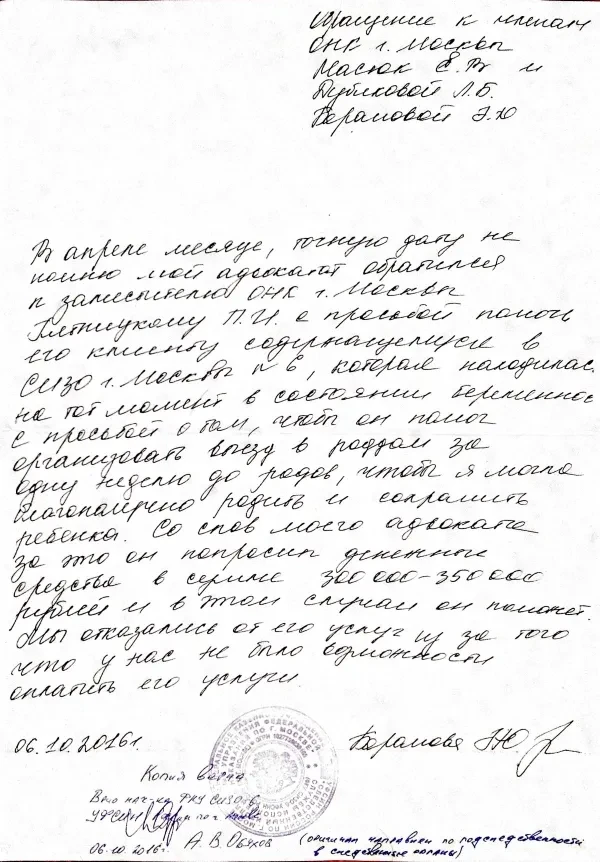 Обращение к членам
ОНК г. Москвы
Масюк Е.В и
Дубиковой Л.Б.
Э.Ю
В апреле месяце, точную дату не
помню мой адвокат обратился
к заместителю ОНК г. Москвы
П.И. с просьбой помочь
его клиенту содержащемуся в
СИЗО г. Москвы №6, которая находилас
на тот момент в состоянии беременнос
с просьбой о том, чтобы он помог
организовать выезд в роддом за
одну неделю до родов, чтобы я могла
благополучно родить и сохранить
ребёнка. Со слов моего адвоката
за это он попросил денежные
средства в сумме 300 000-350 000
рублей и в этом случаи он поможет.
Мы отказались от его услуг из за того
что у нас не было возможности
оплатить его услуги.
06.10.2016г. Э.Ю.
Копия верна
Врио нач-ка ФКУ СИЗО-6
УФСИН
06.10 2016г. А.В. Обухов (оригинал направлен по подследственности
в следственные органы)